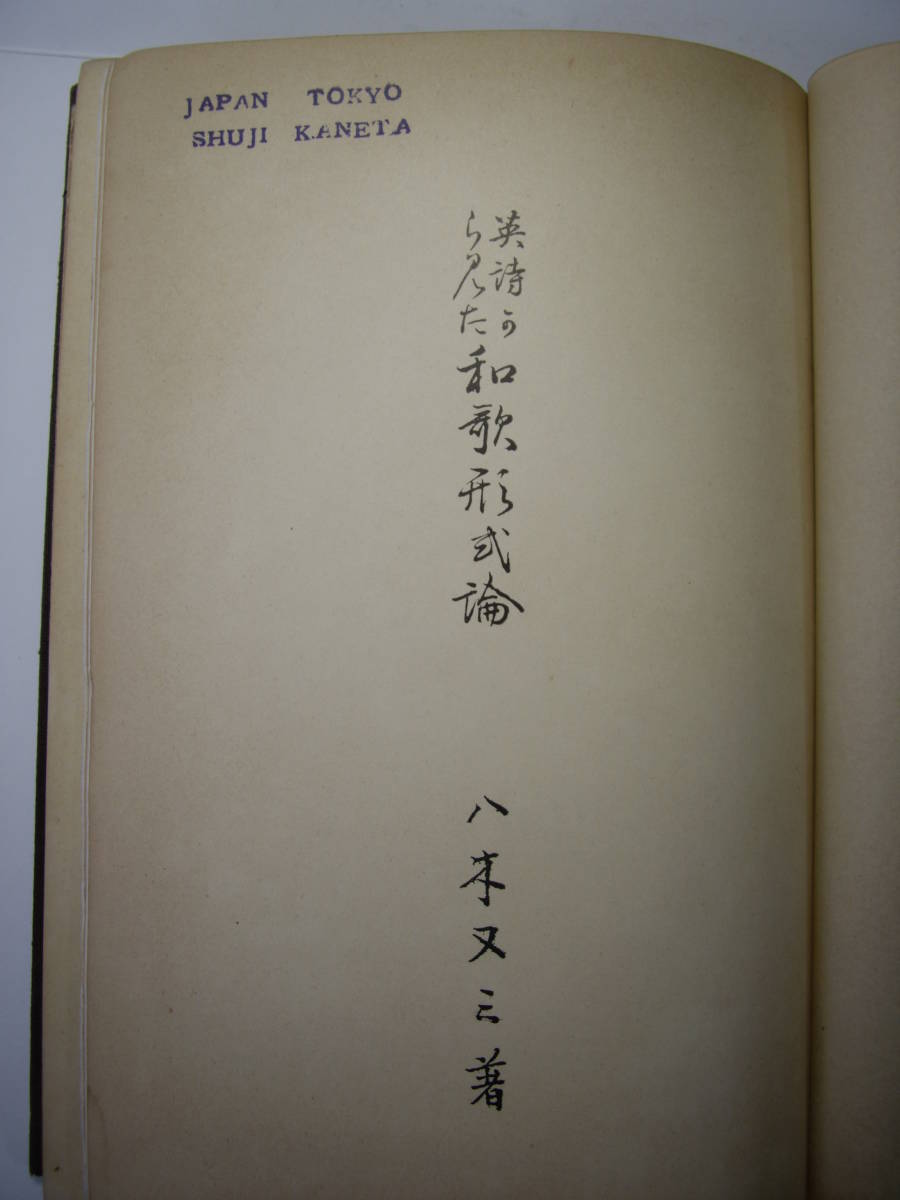 JAPAN TOKYO
SHUJI KANETA
英詩か
ら見た
和歌形式論
八木又三著